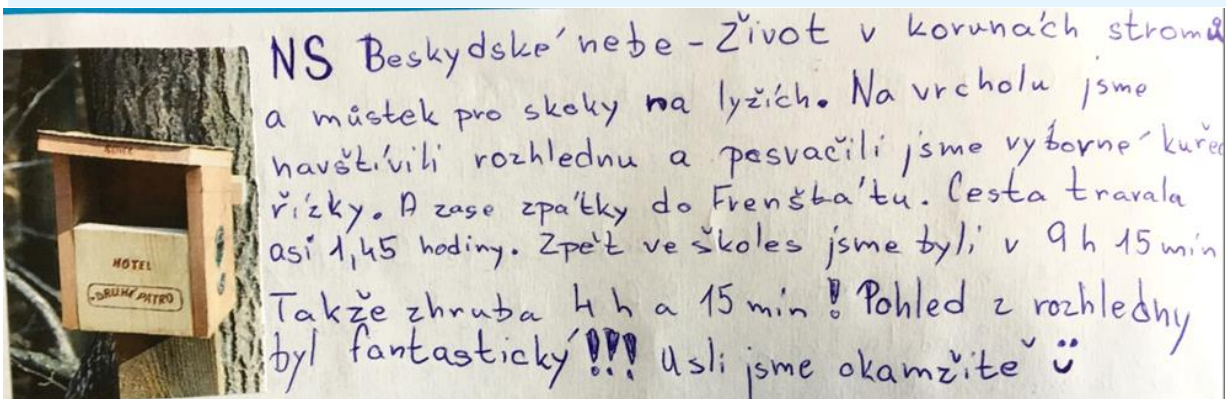 NS Beskydské nebe - Život v korunách stromů
a můstek pro skoky na lyžích. Na vrcholu jsme
navštívili rozhlednu a posvačili jsme výborné kuřec
řízky. A zase zpátky do Frenštátu. Cesta travala
asi 1,45 hodiny. Zpět ve školes jsme byli v 9 h 15 min
Takže zhruba 4 h a 15 min! Pohled z rozhledny
byl fantastický!!! Usli jsme okamžitě
HOTEL
DRUHÉ PATRO